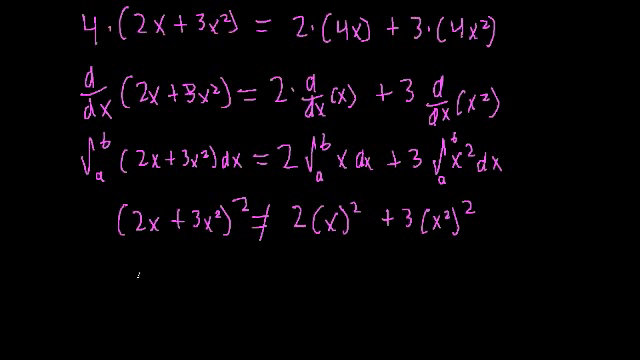 4·(2x+3x²) = 2·(4x) + 3·(4x²)
d/dx (2x+3x²) = 2·d/dx(x) + 3 d/dx(x²)
∫ₐᵇ (2x+3x²)dx = 2∫ₐᵇ x dx + 3 ∫ₐᵇ x² dx
(2x+3x²)² ≠ 2(x)² + 3(x²)²